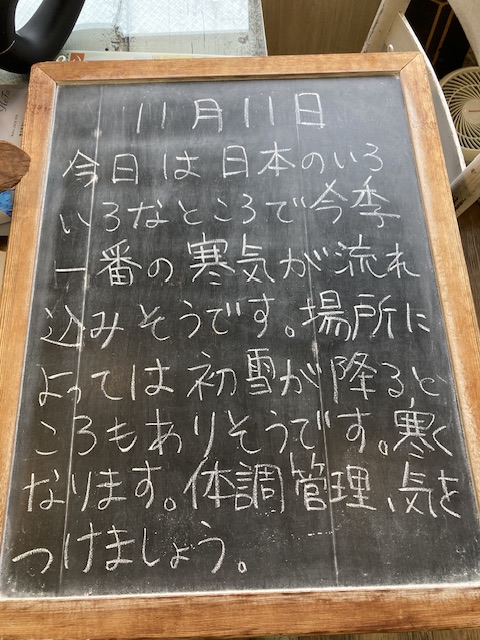 11月11日
今日は日本のいろ
いろなところで今季
一番の寒気が流れ
込みそうです。場所に
よっては初雪が降ると
ころもありそうです。寒く
なります。体調管理、気を
つけましょう。